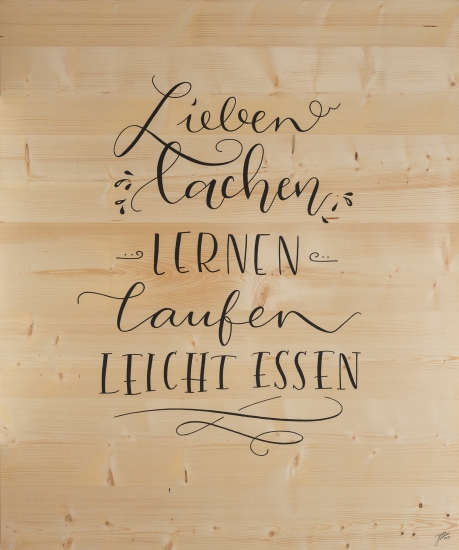 Lieben
lachen
LERNEN
laufen
LEICHT ESSEN